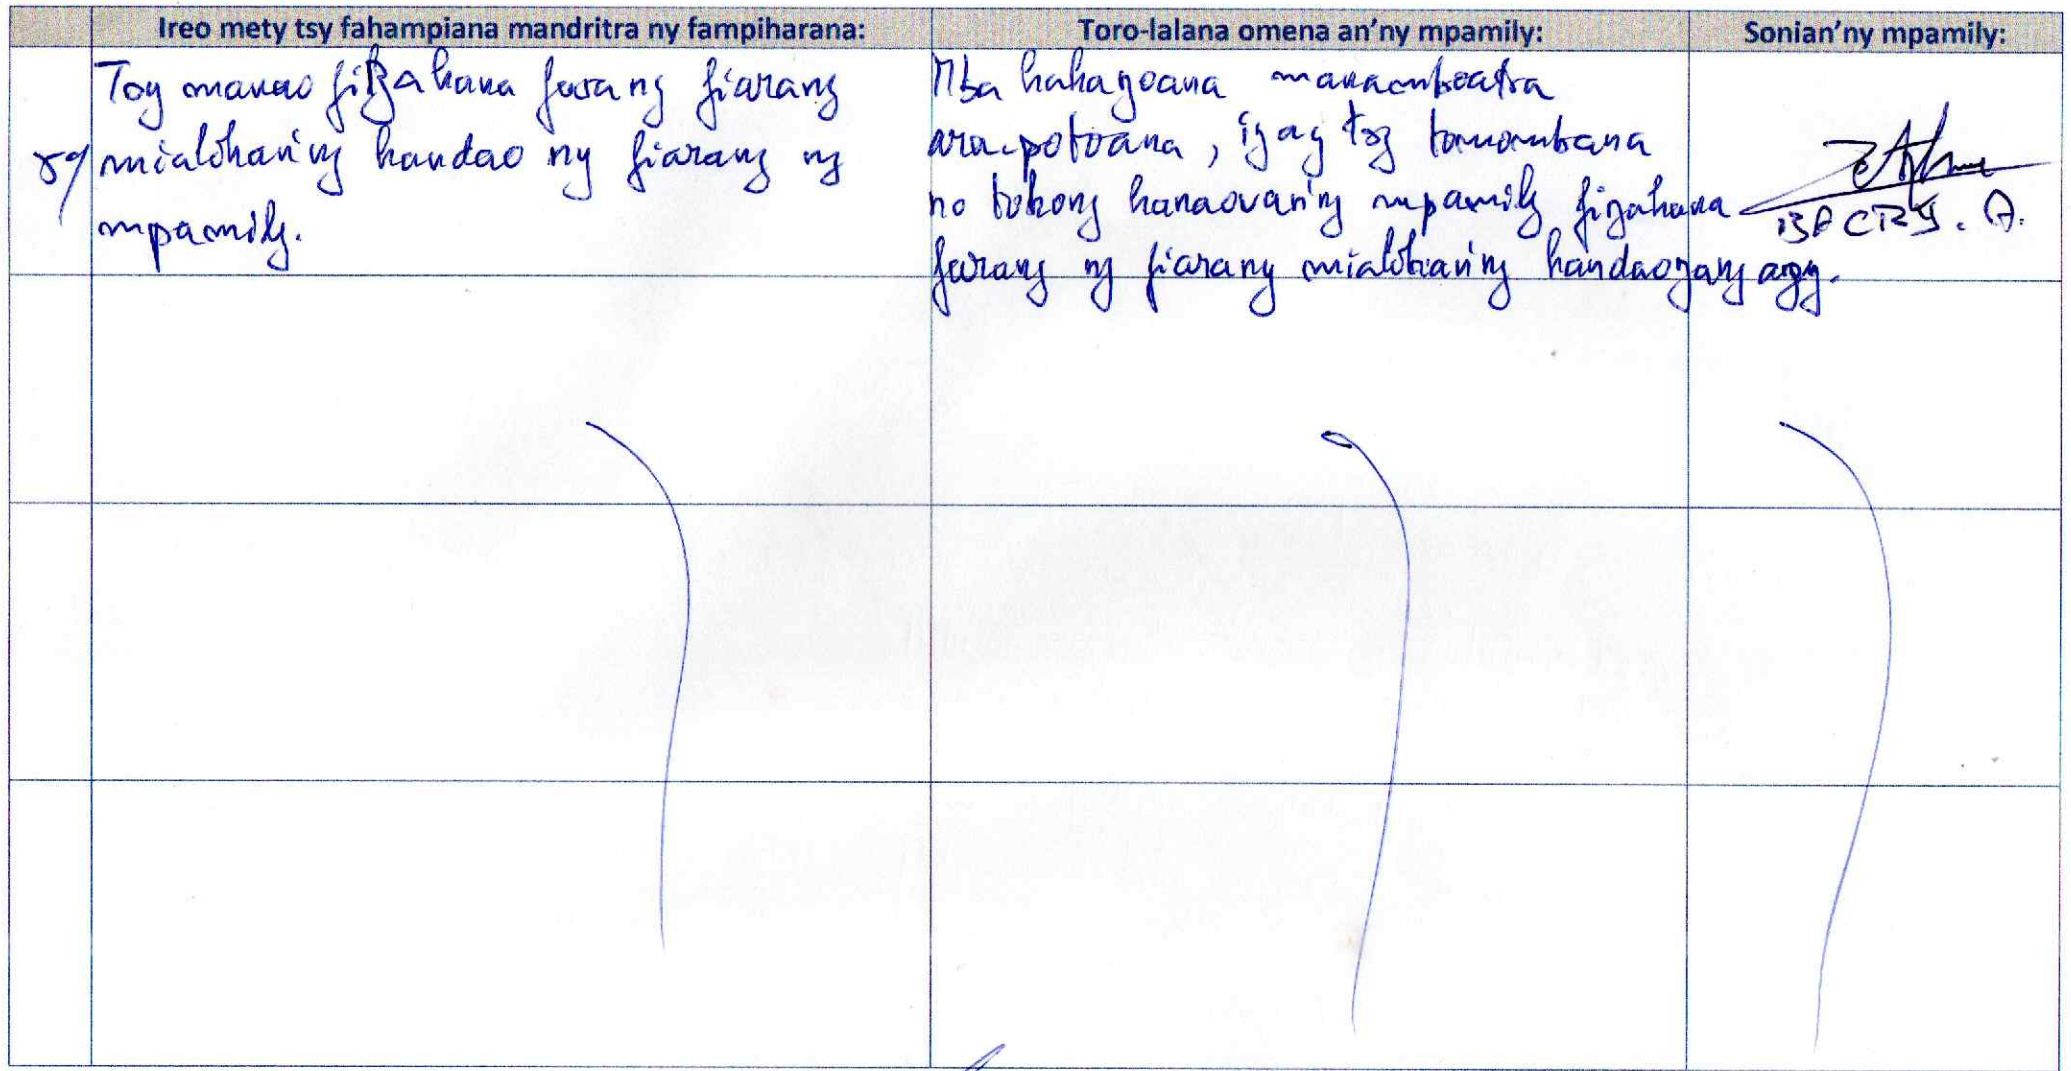 Ireo mety tsy fahampiana mandritra ny fampiharana:
Toro-lalana omena an'ny mpamily:
Sonian'ny mpamily:
Tsy manao fizahana farany fiarany
mialohan'ny handao ny fiarany ny
mpamily.
Mba hahazoana manamboatra
ara-potoana, izay tsy tomombana
no tokony hanaovan'ny mpamily fizahana
farany ny fiarany mialohan'ny handaozany azy.